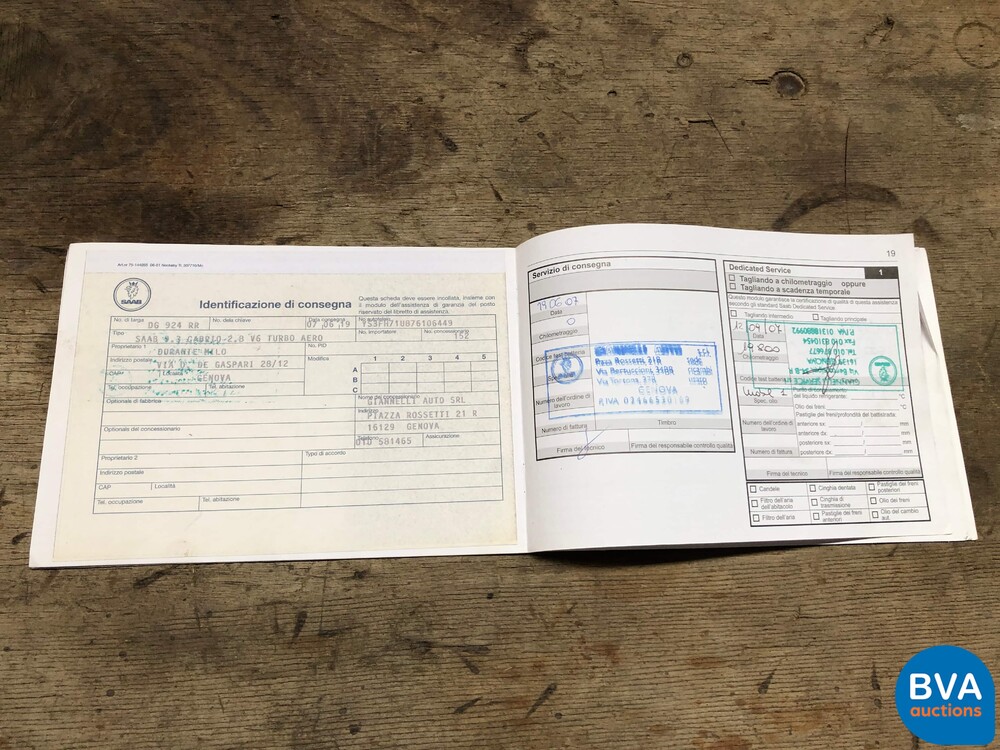 SAAB
Identificazione di consegna
Questa scheda deve essere incollata, insieme con
il modulo dell'assistenza di garanzia del posto
riservato del libretto di assistenza.
No. di targa
DG 924 RR
No. della chiave
Data consegna
07.06.19
No. autotelaio
YS3FH71U876106449
Tipo
SAAB 9.3 CABRIO 2.8 V6 TURBO AERO
No. importatore
No. concessionario
152
Proprietario 1
DURANTE MILO
No. PID
Indirizzo postale
VIA DE GASPARI 28/12
Modifica
1 2 3 4 5
A
B
C
CAP
GENOVA
Tel. occupazione
Tel. abitazione
Nome del concessionario
GIANNELLI AUTO SRL
Optionals di fabbrica
Indirizzo
PIAZZA ROSSETTI 21 R
16129 GENOVA
Optionals del concessionario
Telefono
010 581465
Assicurazione
Proprietario 2
Tipo di accordo
Indirizzo postale
CAP
Località
Tel. occupazione
Tel. abitazione
Servizio di consegna
19.06.07
Data
0
Chilometraggio
Codice test batteria
Numero dell'ordine di
lavoro
Numero di fattura
Timbro
Firma del tecnico
Firma del responsabile controllo qualità
19
Dedicated Service
1
Tagliando a chilometraggio oppure
Tagliando a scadenza temporale
Questo modulo garantisce la certificazione di qualità di questa assistenza
secondo gli standard Saab Dedicated Service
Tagliando intermedio
Tagliando principale
12/09/07
Data
19800
Chilometraggio
Codice test batteria
Mobil 1
Spec. olio
del liquido refrigerante:
°C
Olio dei freni:
°C
Pastiglie dei freni/profondità del battistrada:
Numero dell'ordine di
lavoro
anteriore sx: / mm
anteriore dx: / mm
Numero di fattura
posteriore sx: / mm
posteriore dx: / mm
Firma del tecnico
Firma del responsabile controllo qualità
Candele
Cinghia dentata
Pastiglie dei freni
posteriori
Filtro dell'aria
dell'abitacolo
Cinghia di
trasmissione
Olio dei freni
Filtro dell'aria
Pastiglie dei freni
anteriori
Olio del cambio
aut.
BVA
auctions